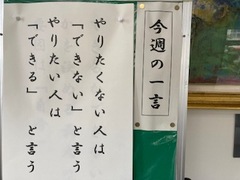 今週の一言
やりたくない人は
「できない」と言う
やりたい人は
「できる」と言う